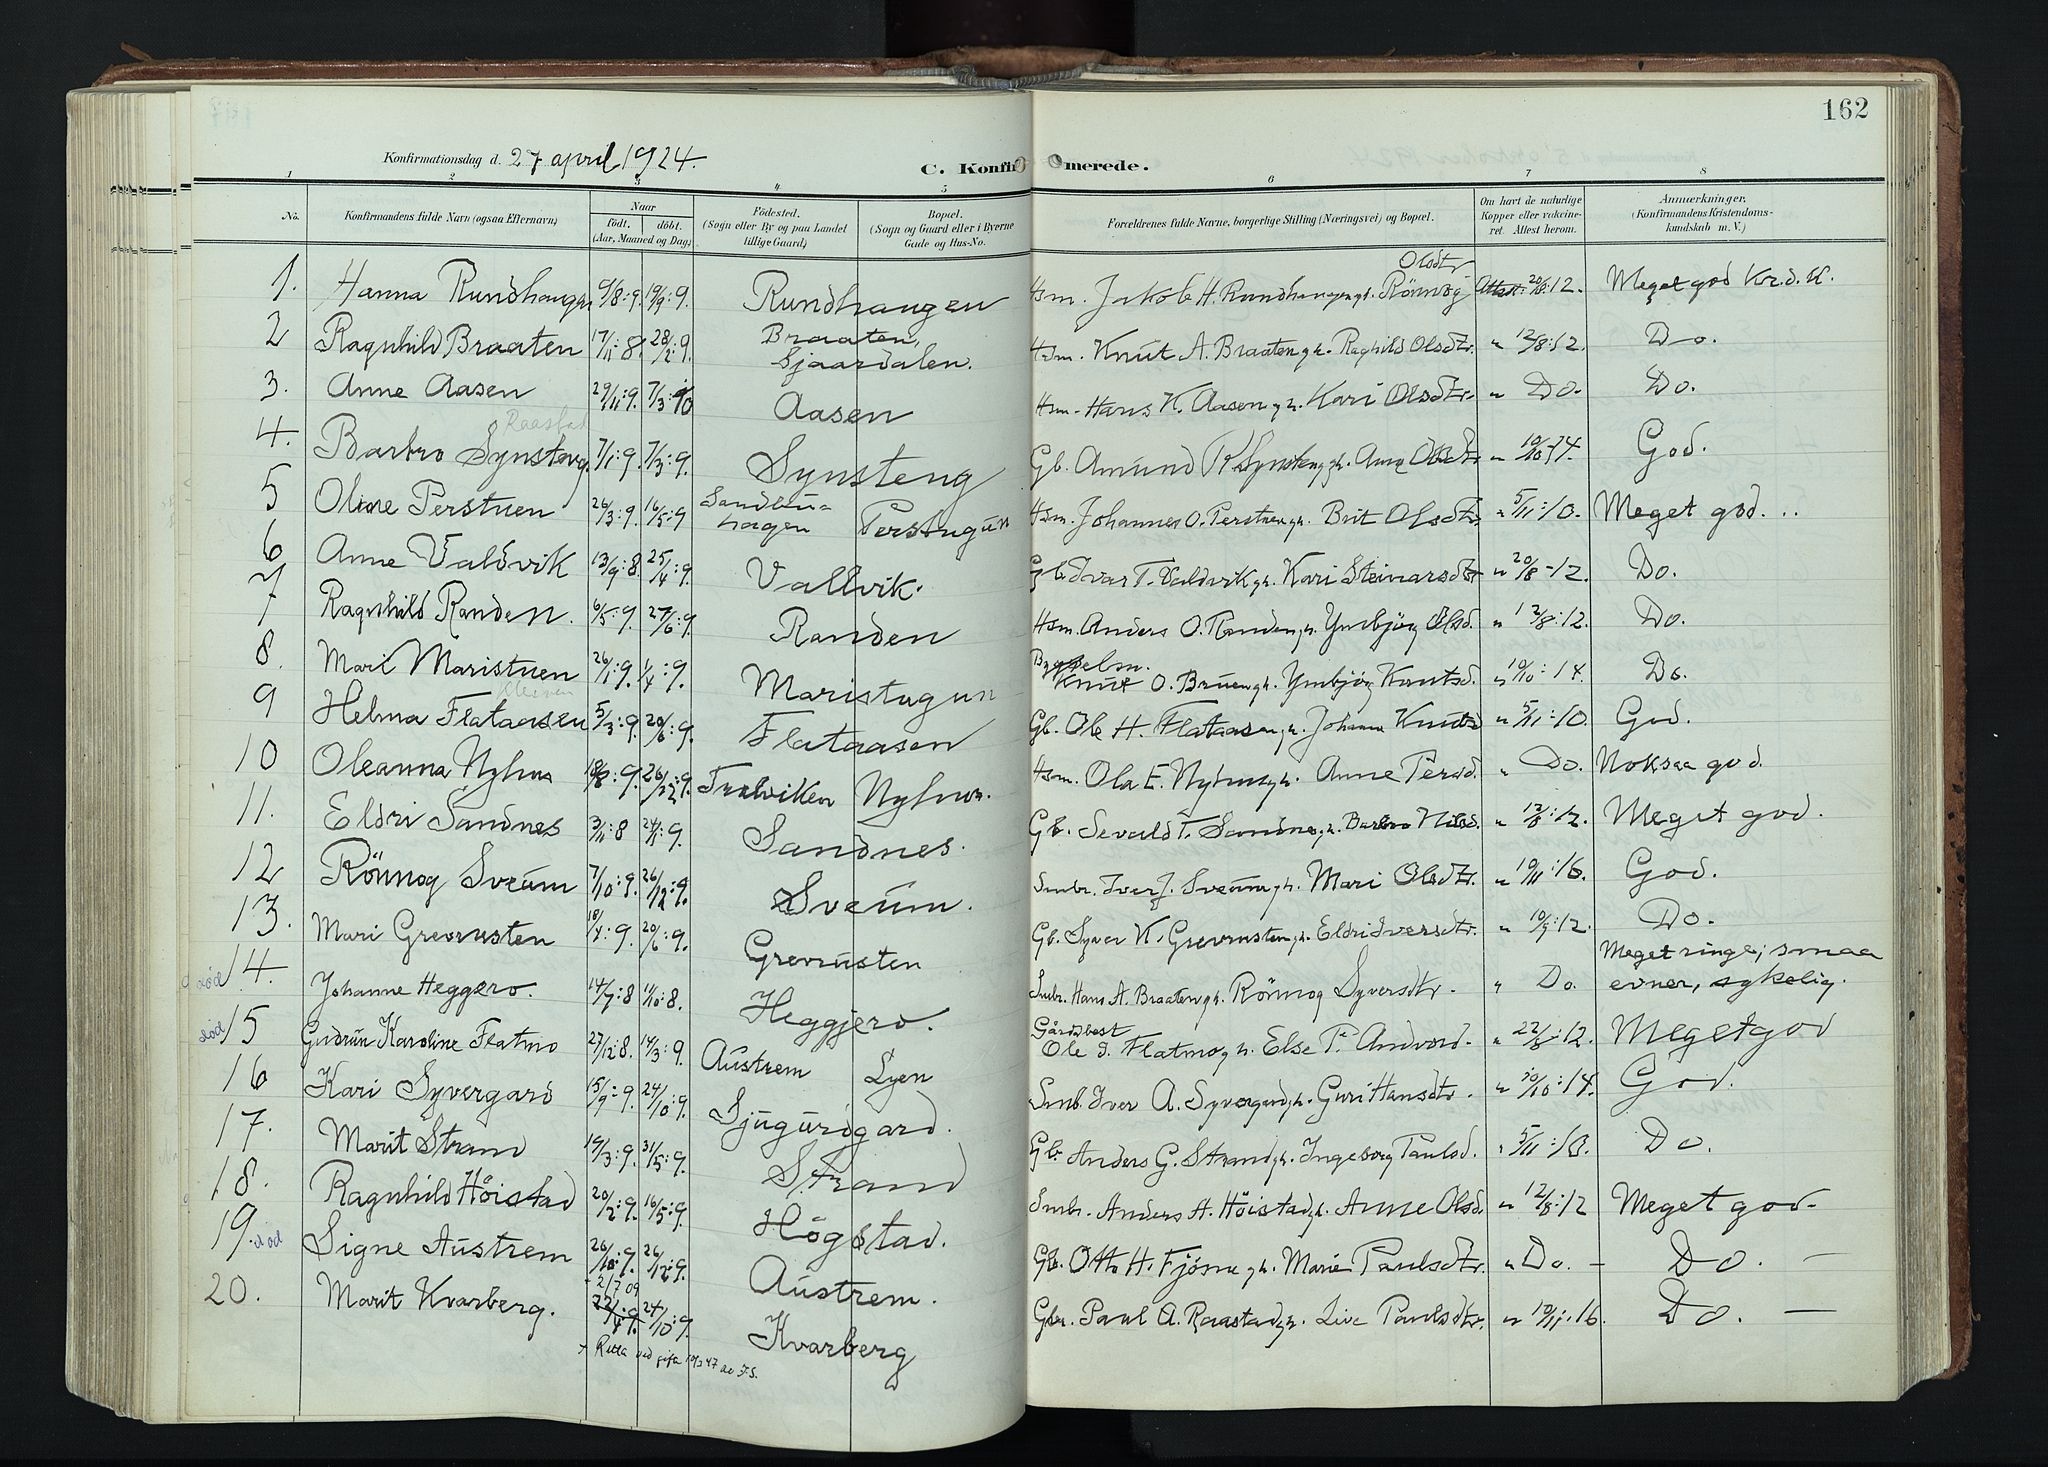 162
Konfirmationsdag d. 27 april 1924.
C. Konfirmerede.
1 2 3 4 5 6 7 8
No. Konfirmandens fulde Navn (ogsaa Efternavn)
Naar født. døbt. (Aar, Maaned og Dag)
Fødested. (Sogn eller By og paa Landet tillige Gaard)
Bopæl. (Sogn og Gaard eller i Byerne Gade og Hus-No.
Forældrenes fulde Navne, borgerlige Stilling (Næringsvei) og Bopæl.
Om havt de naturlige Kopper eller vakcineret. Attest herom.
Anmærkninger. (Konfirmandens Kristendomskundskab m. V.)
1. Hanna Rundhaugen 9/8:9. 19/9:9. Rundhaugen Hsm. Jakob H. Rundhaugen gh. Rönnog Olsdtr 12. Meget god Kr.d.K.
2 Ragnhild Braaten 17/11:8. 28/2:9. Braaten, Sjaardalen. Hsm. Knut A. Braaten gh. Raghild Olsdtr. " 12/8:12. Do.
3. Anne Aasen 29/11:9. 7/3:10 Aasen Hsm. Hans K. Aasen gh. Kari Olsdtr. " Do. Do.
Raastad
4. Barbro Synsteng 7/1:9. 7/3:9. Synsteng Gb. Amund Synsteng gh. Anne Olsdtr " 10/10-14. God.
5 Oline Perstuen 26/3:9. 16/5:9 Sandbuhagen Perstugun Hsm. Johannes O. Perstuen gh. Brit Olsdtr " 5/11:10. Meget god...
6 Anne Valdvik 13/9:8. 25/4:9. Vallvik. Gb. Ivar T. Valdvik gh. Kari Steinarsdtr " 20/8-12. Do.
7 Ragnhild Randen. 6/5:9. 27/6:9. Randen Hsm. Anders O. Randen gh. Ymbjörg Olsd. " 12/8:12. Do.
8. Mari Maristuen 26/1:9. 1/4:9. Maristugun Byggselm. Knut O. Bruen gh. Ymbjörg Knutsd. " 10/10:14. Do.
9 Helma Flataasen 5/3:9. 20/6:9. Flataasen Gb. Ole H. Flataasen gh. Johanne Knutsd " 5/11:10. God.
10 Oleanna Nyhus 18/8:9. 26/12:9. Nyhus. Hsm. Ola E. Nyhus gh. Anne Persd. " Do. Noksaa god.
11. Eldri Sandnes 3/11:8 24/1:9. Sandnes. Gb. Sevald T. Sandnes gh. Barbro Nilsd. " 12/8:12. Meget god.
12 Rönnog Sveum 7/10:9. 26/12:9. Sveum. Smbr. Iver J. Sveum gh. Mari Olsdtr. " 10/11:16. God.
13. Mari Grevrusten 18/4:9. 20/6:9. Grevrusten Gb. Syver K. Grevrusten gh. Eldri Iversdtr. " 10/9:12. Do.
død 14. Johanne Heggero. 14/7:8 11/10:8. Heggjero. Smbr. Hans A. Braaten gh. Rönnog Syversdtr. " Do. Meget ringe; smaa evner, sykelig.
død 15 Gudrun Karoline Flatmo 27/12:8. 14/3:9. Austrem Lyen Gårdsbest Ole J. Flatmo gh. Else P. Andvord. " 22/8:12. Meget god
16 Kari Syvergard 15/9:9. 24/10:9. Sjugurdgard. Smb. Iver A. Syvergard gh. Guri Hansdtr. " 10/10:14. God.
17. Marit Stram 19/3:9. 31/5:9. Strand Gb. Anders G. Strand gh. Ingeborg Paulsd. " 5/11:10. Do.
18. Ragnhild Höistad 20/2:9. 16/5:9. Högstad. Smbr. Anders A. Höistad gh. Anne Olsd. " 12/8:12 Meget god.
19. død Signe Austrem 26/10:9. 26/12:9. Austrem. Gb. Otto H. Fjösne gh. Marie Paulsdtr. " Do. - Do. -
20. Marit Kvarberg. + 2/7 09 24/10:9. Kvarberg Gbr. Paul A. Raastad gh. Live Paulsdtr. " 10/11:16. Do. -
+ Retta ved gifta 10/3 47 av F.S.